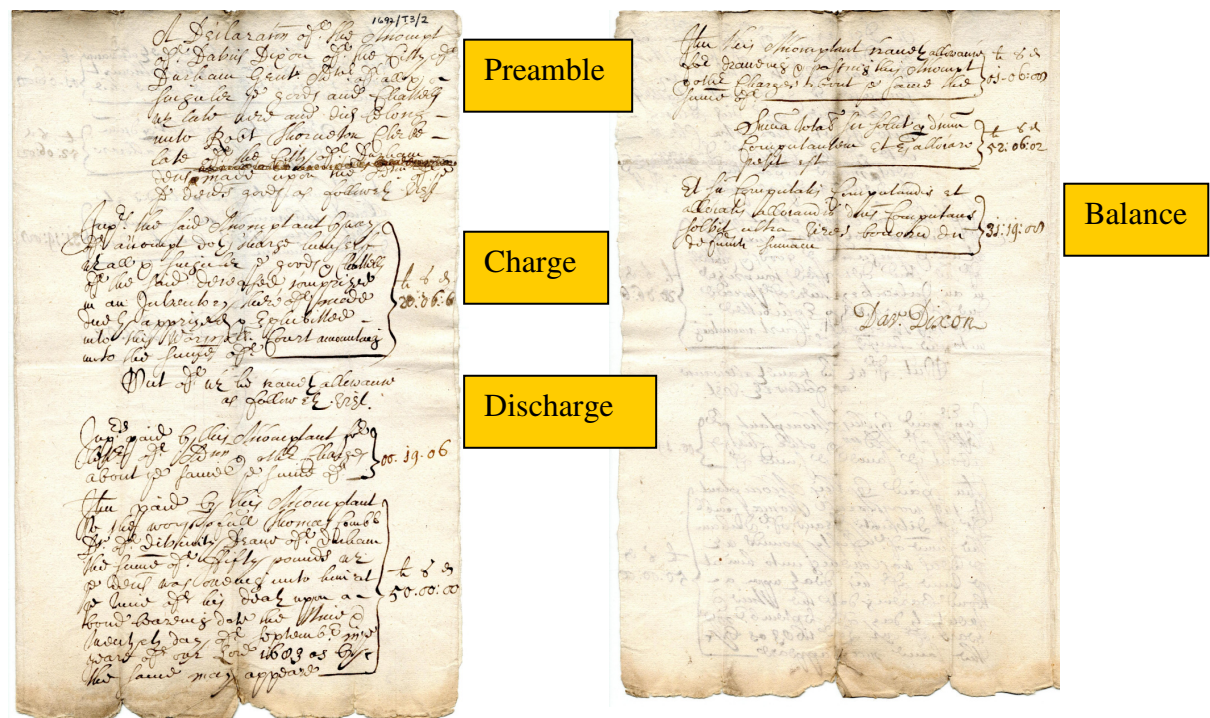 1697/T3/2
A Declaration of the Accompt
of Davis Dixon of the Citty of
Durham Gent of all &
singuler ye goods and Chattells
wch late were and did belong
unto Robt Thorneton Clerke
late of the Citty of Durham
made upon the
goods as followeth vizt
Preamble
the said Accomptant by way
of accompt doth charge
all & singuler ye goods & Chattells
of the said deceased comprized
in an Inventory thereof made
duely apprized & Exhibitted
into this Court amounting
unto the sume of
li s d
20:06:6
Charge
Out of wch he craveth allowance
as followeth vizt.
Discharge
paid by this Accomptant for
of & other Charges
about ye same ye sume of
00:19:06
Itm paid by this Accomptant
to the worshipfull Thomas Comber
Dr of divinity Deane of Durham
the sume of fifty pounds wch
ye was oweing unto him at
ye time of his death upon a
bond beareing date the Nine &
twentyth day of September
yeare of our Lord 1683 as by
the same may appeare
li s d
50:00:00
Itm this Accomptant craveth allowance
for draweing & passing this Accompt
& other Charges about ye same the
sume of
li s d
01:06:08
Suma total
Computantem et
petit est
li s d
52:06:02
Et sic computatis computandis et
allocatis allocandis Computans
solvit ultra vires bonorum
summam
31:19:08
Balance
Dav: Dixon